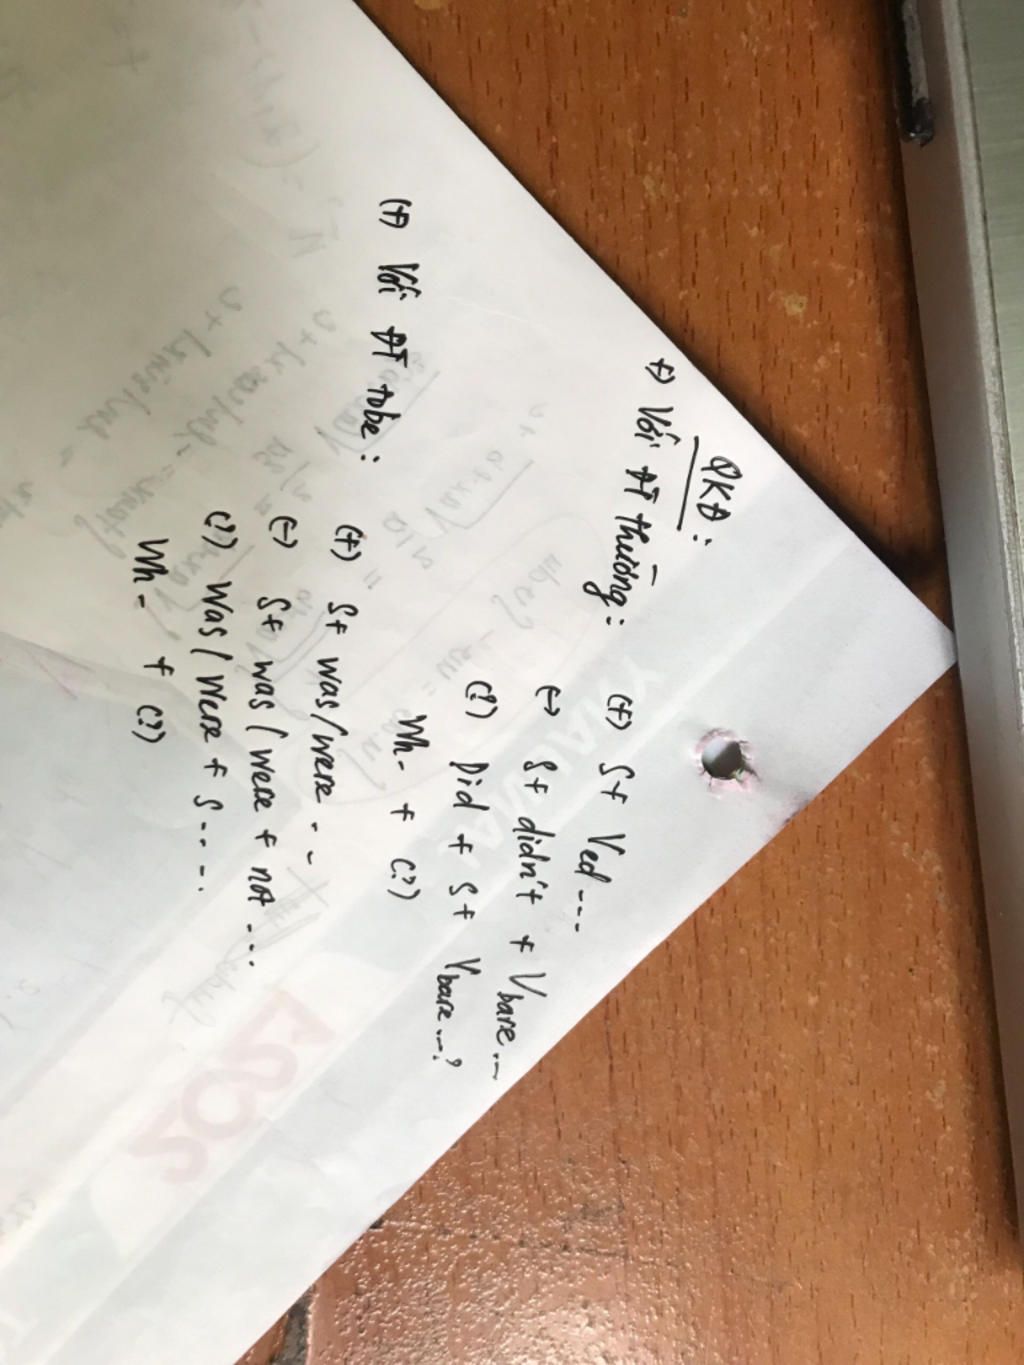 QKĐ:
+) Với ĐT thường:
(+) S + Ved ...
(-) S + didn't + Vbare ...
(?) Did + S + Vbare ...?
Wh- + (?)
(+) Với ĐT tobe:
(+) S + was/were ...
(-) S + was/were + not ...
(?) Was/Were + S ....
Wh- + (?)